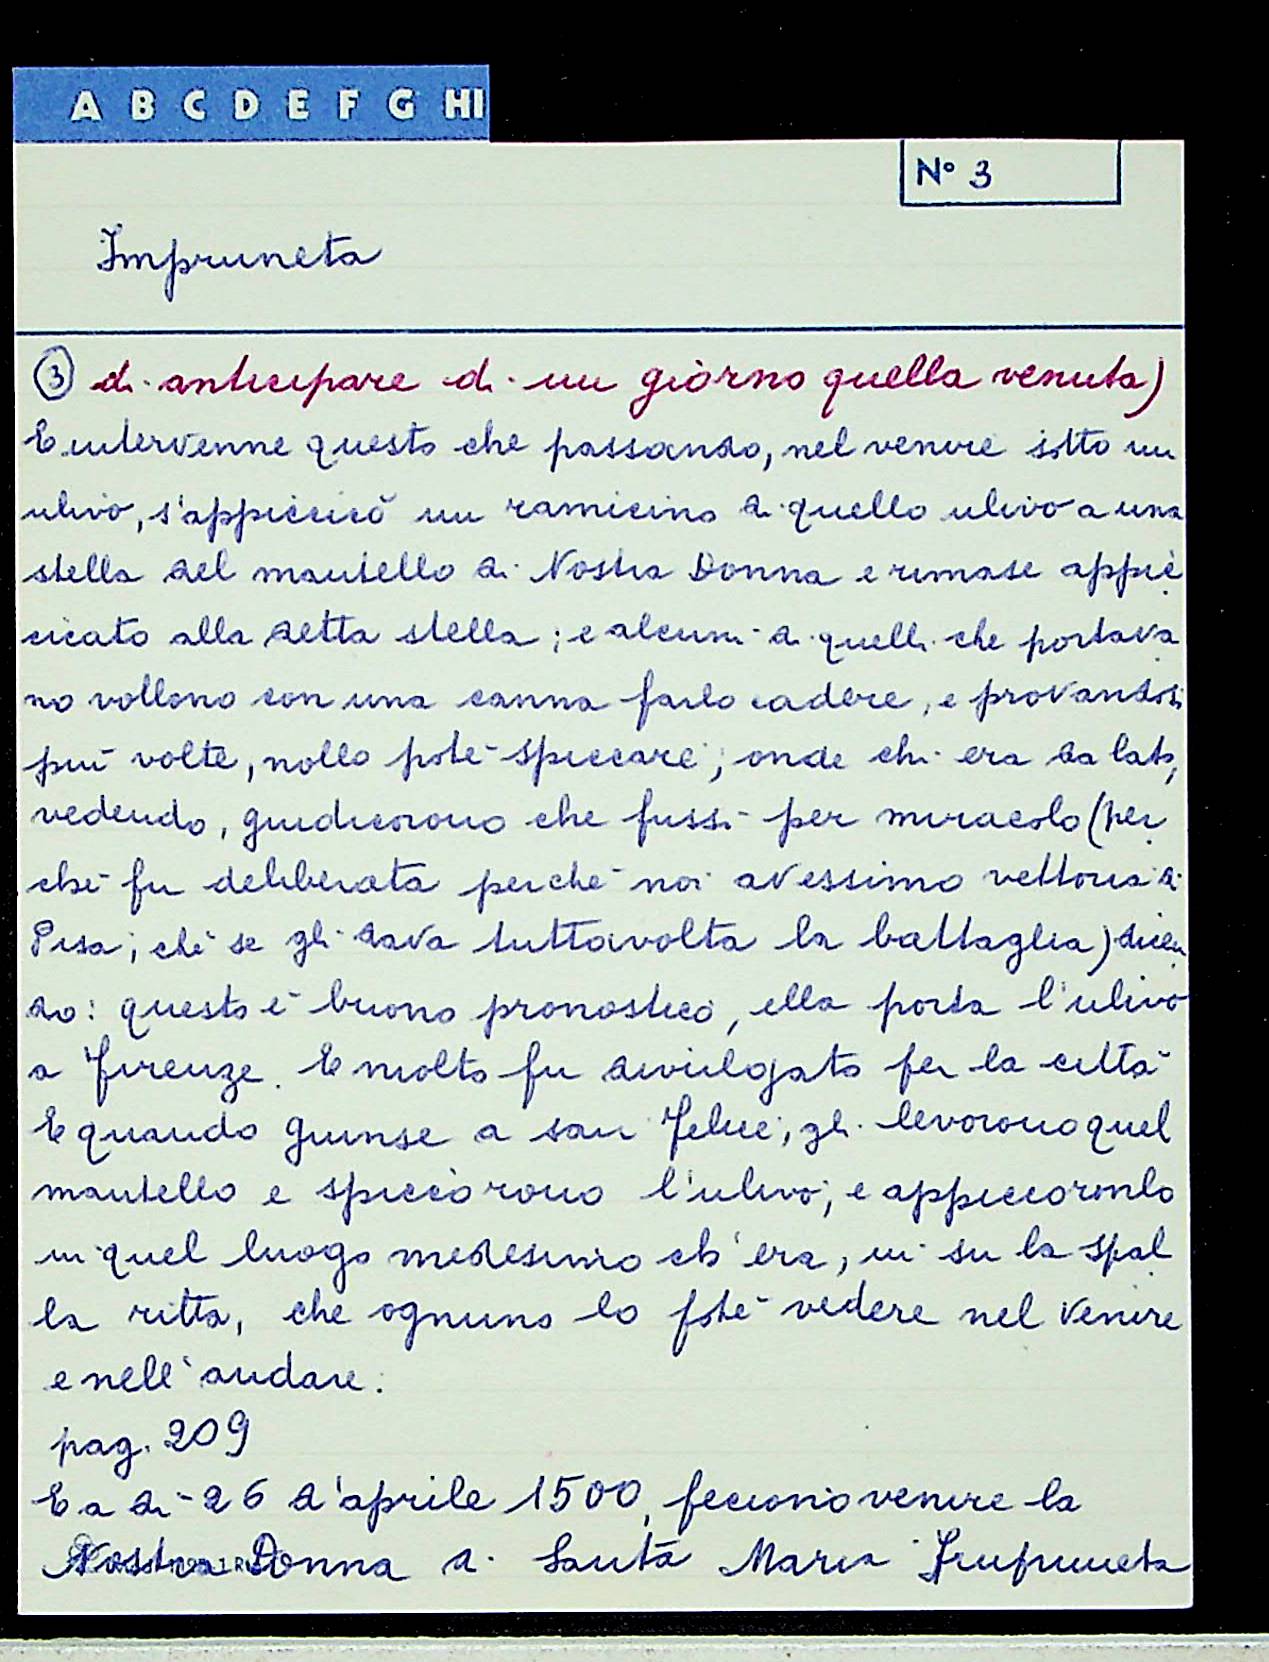 A B C D E F G HI
N° 3
Impruneta
③ di anticipare di un giorno quella venuta)
E intervenne questo che passando, nel venire sotto un
ulivo, s'appiccicò un ramicino di quello ulivo a una
stella del mantello di Nostra Donna e rimase appic
cicato alla detta stella; e alcuni di quelli che portava
no vollono con una canna farlo cadere, e provandosi
più volte, nollo potè spiccare; onde chi era da lato,
vedendo, giudicorono che fussi per miracolo (per
chè fu deliberata perchè noi avessimo vettoria di
Pisa; chè se gli dava tuttavolta la battaglia) dicen
do: questo è buono pronostico, ella porta l'ulivo
a Firenze. E molto fu divulgato per la città
E quando giunse a san Felice, gli levorono quel
mantello e spiccorono l'ulivo; e appiccoronlo
in quel luogo medesimo ch'era, in su la spal
la ritta, che ognuno lo potè vedere nel venire
e nell'andare.
pag. 209
E a dì 26 d'aprile 1500, feciono venire la
Nostra Donna di Santa Maria Impruneta